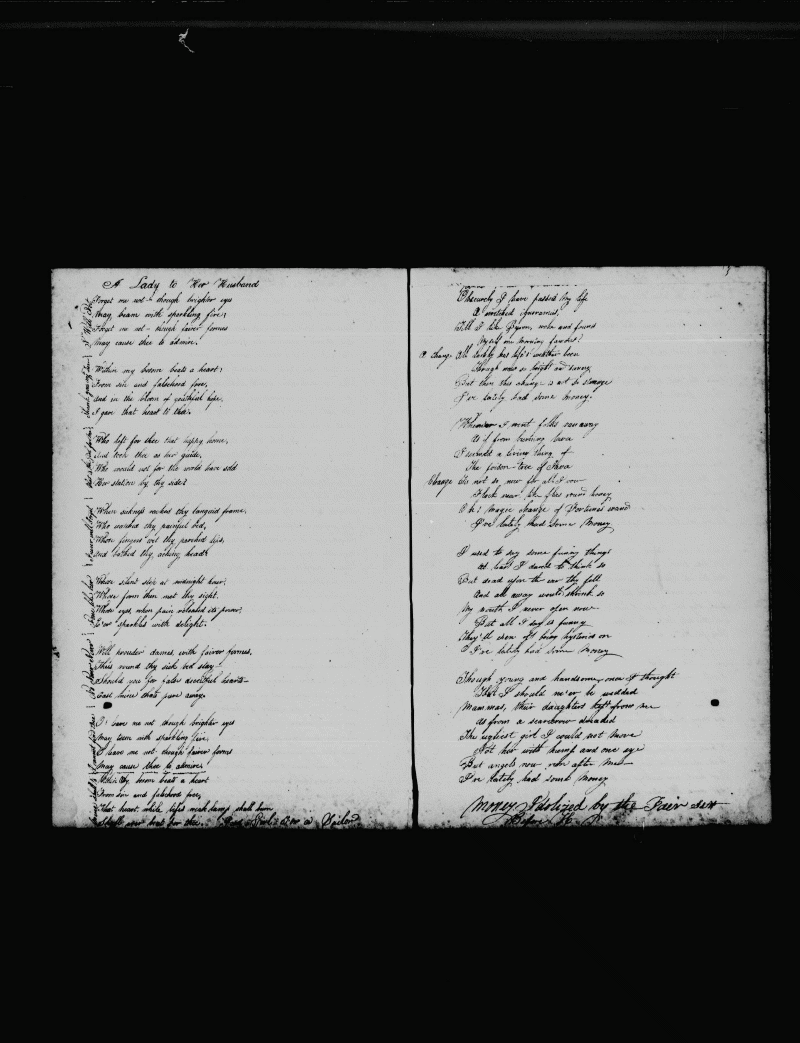 A Lady to Her Husband
Forget me not though brighter eyes
May beam with sparkling fire;
Forget me not - though fairer forms
May cause thee to admire.
Within my bosom beats a heart;
From sin and falsehood free,
And in the bloom of youthful hope,
I gave that heart to thee.
Who left for thee that happy home,
And took thee as her guide,
Who would not for the world have sold
Her station by thy side?
When sickness racked thy languid frame,
Who watched thy painful bed,
Whose fingers wet thy parched lips,
And bathed thy aching head?
Whose silent step at midnight hour,
Whose form then met thy sight,
Whose eyes, when pain its power,
E'er sparkled with delight.
Will prouder dames, with fairer forms,
Thus round thy sick bed stay
Should you for false deceitful hearts
Cast mine that's pure away.
O! leave me not though brighter eyes
May beam with sparkling fire,
O leave me not though fairer forms
May cause thee to admire;
Within my bosom beats a heart
From sin and falsehood free,
That heart, while life's weak lamp shall burn
Shall ever beat for thee. a Sailor
Obscurely I have passed my life
A wretched ignoramus,
Till I like Byron, woke and found
Myself one morning famous!
A change All lately has life's weather been
Though now so bright and sunny
But then this change is not so strange
I've lately had some money.
Whenever I went folks ran away
As if from burning lava
I seemed a living thing of
The poison-tree of Java
Change Tis not so now for all I row
Flock near like flies round honey
Oh! magic change of Fortune's wand
I've lately had some Money
I used to say some funny things
At least I dared to think so
But dead upon the ear they fell
And all away would shrink so
My mouth I never open now
But all I say is funny
They'll even bring hysterics on
I've lately had some Money
Though young and handsome, once I thought
That I should ne'er be wedded
Mammas, their daughters kept from me
As from a scarecrow dreaded
The ugliest girl I could not move
Not her with hump and one eye
But angels now run after me
I've lately had some Money
Money Idolized by the Fair sex